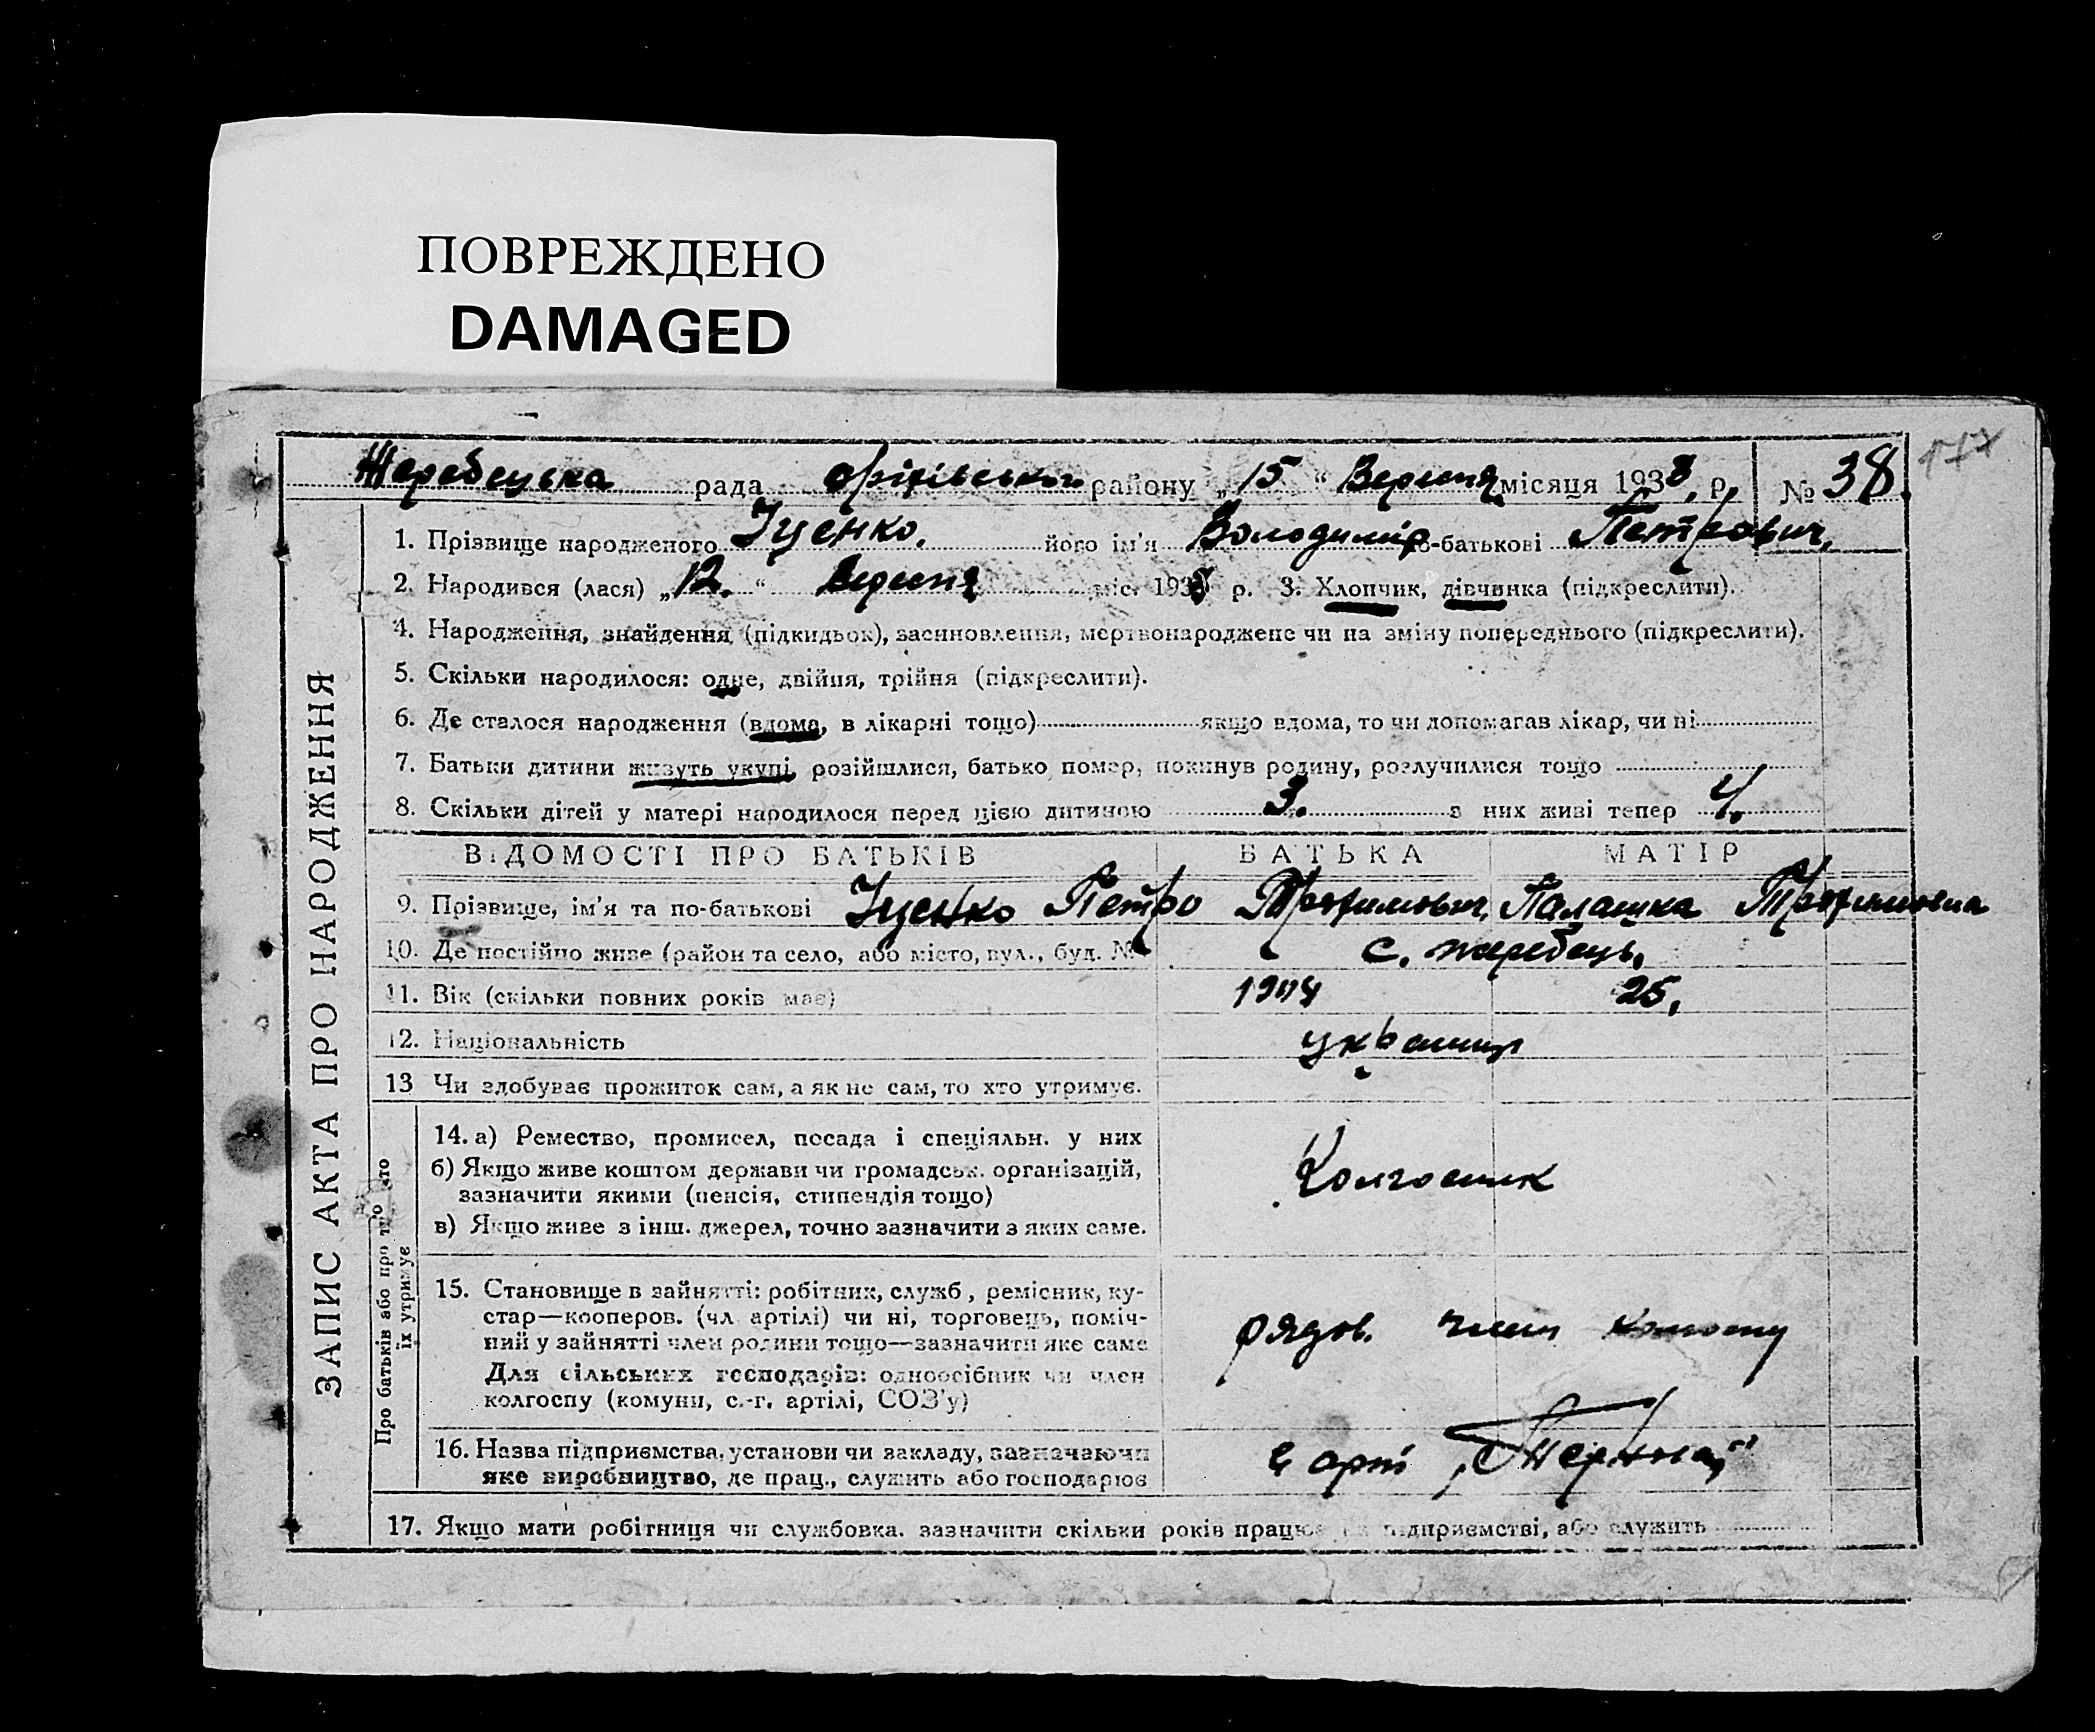 ПОВРЕЖДЕНО
DAMAGED
177
Жеребецька рада Оріхівського району „15“ Вересня місяця 1933 р. № 38.
1. Прізвище народженого Іценко. його ім'я Володимір по-батькові Петрович.
2. Народився (лася) „12.“ Вересня міс. 193 р. 3. Хлопчик, дівчинка (підкреслити).
4. Народження, знайдення (підкидьок), засиновлення, мертвонароджене чи на зміну попереднього (підкреслити).
5. Скільки народилося: одне, двійня, трійня (підкреслити).
6. Де сталося народження (вдома, в лікарні тощо) якщо вдома, то чи допомагав лікар, чи ні
7. Батьки дитини живуть укупі, розійшлися, батько помер, покинув родину, розлучилися тощо
8. Скільки дітей у матері народилося перед цією дитиною 3. з них живі тепер 4.
ВІДОМОСТІ ПРО БАТЬКІВ БАТЬКА МАТІР
9. Прізвище, ім'я та по-батькові Іценко Петро Трофимович Палашка Трофимовна
10. Де постійно живе (район та село, або місто, вул., буд. № с. Жеребець.
11. Вік (скільки повних років має) 1904 25,
12. Національність українці
13 Чи здобуває прожиток сам, а як не сам, то хто утримує.
14. а) Ремество, промисел, посада і спеціяльн. у них
б) Якщо живе коштом держави чи громадськ. організацій,
зазначити якими (пенсія, стипендія тощо)
в) Якщо живе з інш. джерел, точно зазначити з яких саме.
Колгоспник
15. Становище в зайнятті: робітник, служб, ремісник, ку-
стар—кооперов. (чл. артілі) чи ні, торговець, поміч-
ний у зайнятті член родини тощо—зазначити яке саме
Для сільських господарів: одноосібник чи член
колгоспу (комуни, с.-г. артілі, СОЗ'у)
рядов. член колгоспу
16. Назва підприємства, установи чи закладу, зазначаючи
яке виробництво, де прац., служить або господарює
с арт
17. Якщо мати робітниця чи службовка, зазначити скільки років працює на підприємстві, або служить
ЗАПИС АКТА ПРО НАРОДЖЕННЯ
Про батьків або про того хто
їх утримує